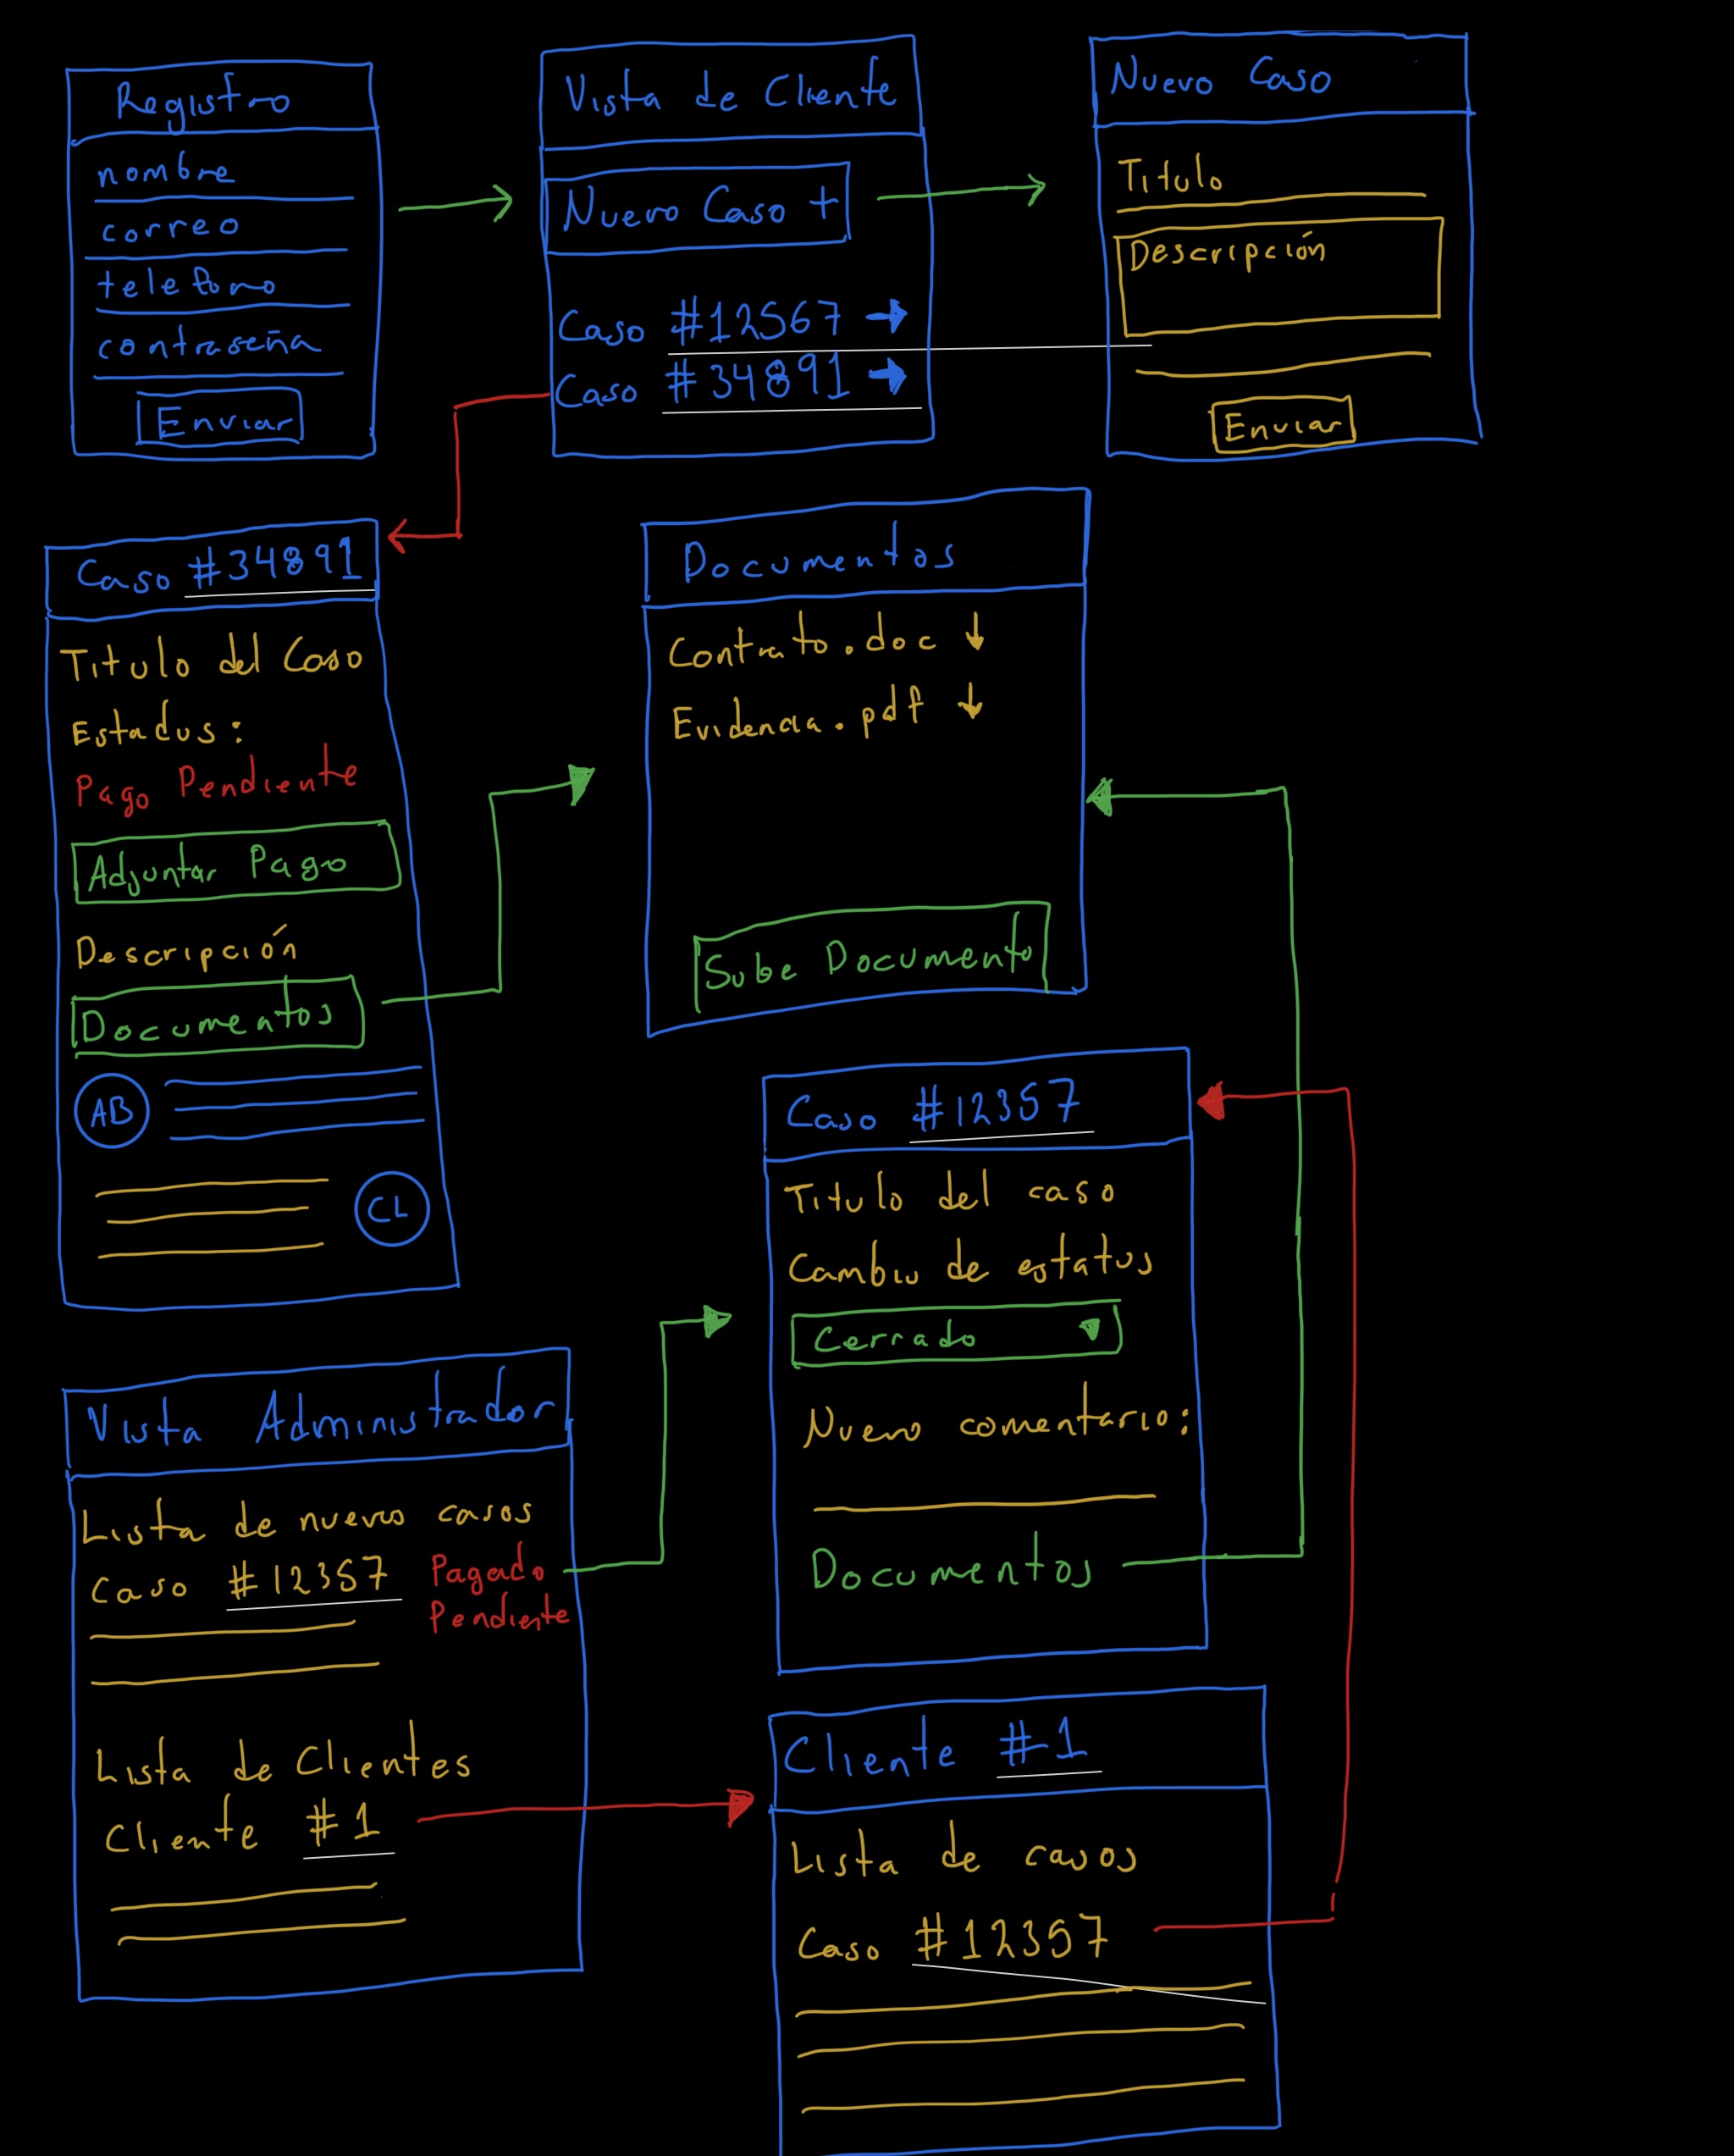 Registro
nombre
correo
telefono
contraseña
Enviar
Vista de Cliente
Nuevo Caso +
Caso #12567 →
Caso #34891 →
Nuevo Caso
Titulo
Descripción
Enviar
Caso #34891
Titulo del Caso
Estadus:
Pago Pendiente
Adjuntar Pago
Descripción
Documentos
AB
CL
Documentos
Contrato.doc ↓
Evidencia.pdf ↓
Sube Documento
Caso #12357
Titulo del caso
Cambio de estatus
Cerrado
Nuevo comentario:
Documentos
Vista Administrador
Lista de nuevos casos
Caso #12357 Pagado
Pendiente
Lista de Clientes
Cliente #1
Cliente #1
Lista de casos
Caso #12357